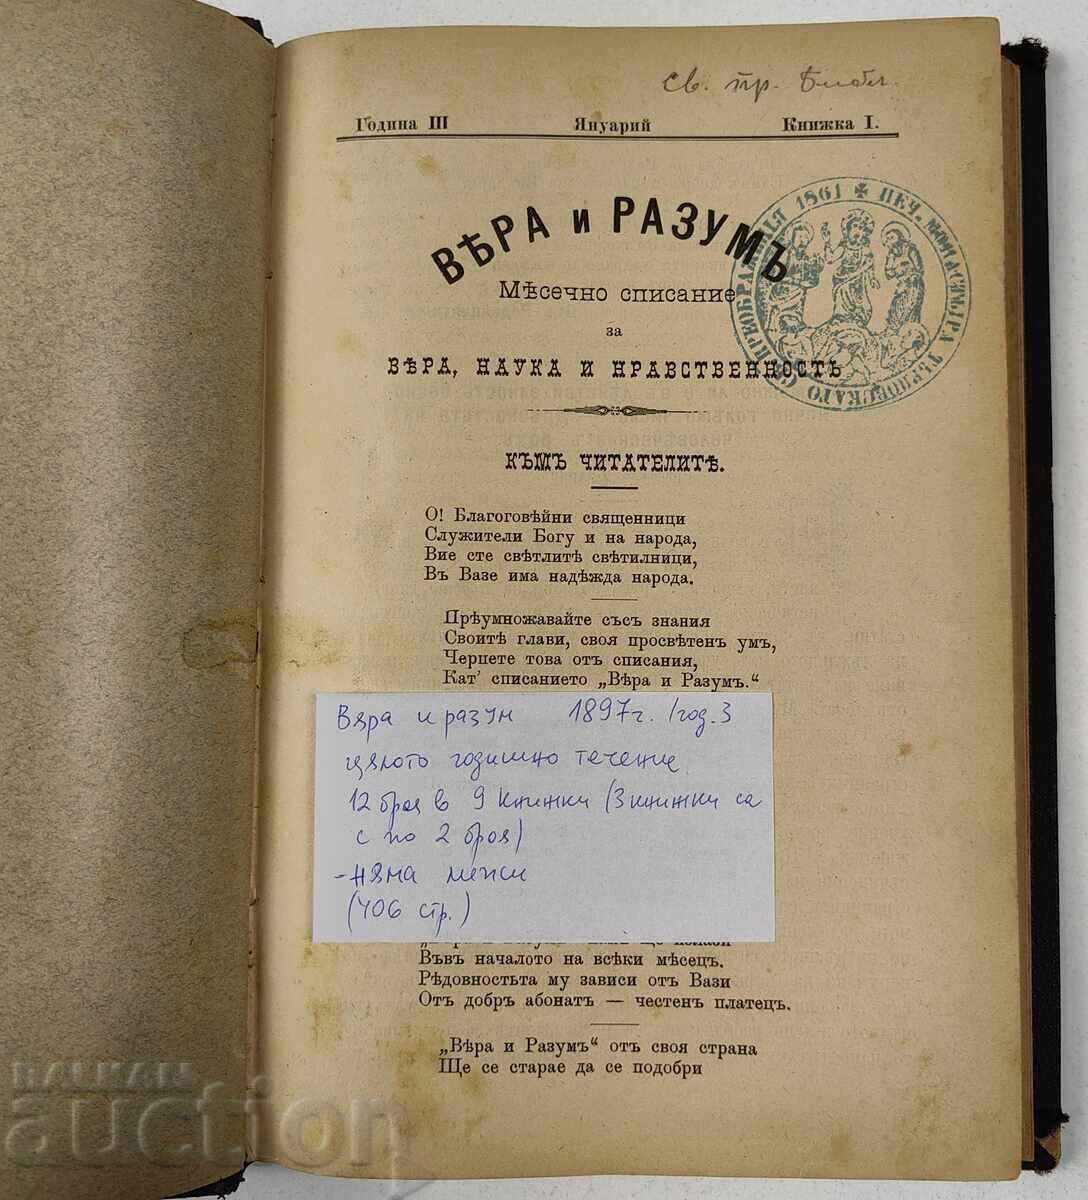 Св. пр. Библ.
Година III Януарий Книжка I.
ВѢРА и РАЗУМЪ
Мѣсечно списание
за
ВѢРА, НАУКА И НРАВСТВЕННОСТЬ
ПЕЧ. МОНАСТЫРА ТЪРНОВСКАГО СВ. ПРЕОБРАЖЕНИЯ 1861
КЪМЪ ЧИТАТЕЛИТѢ.
О! Благоговѣйни священници
Служители Богу и на народа,
Вие сте свѣтлитѣ свѣтилници,
Въ Вазе има надѣжда народа.
Прѣумножавайте съсъ знания
Своитѣ глави, своя просвѣтенъ умъ,
Черпете това отъ списания,
Кат' списанието „Вѣра и Разумъ.“
Вяра и разум 1897г. /год. 3
цялото годишно течение
12 броя в 9 книжки (3 книжки са
с по 2 броя)
- няма липси
(406 стр.)
Въвъ началото на всѣки мѣсецъ.
Рѣдовностьта му зависи отъ Вази
Отъ добръ абонатъ — честенъ платецъ.
„Вѣра и Разумъ“ отъ своя страна
Ще се старае да се подобри
БАЛКАН
auction